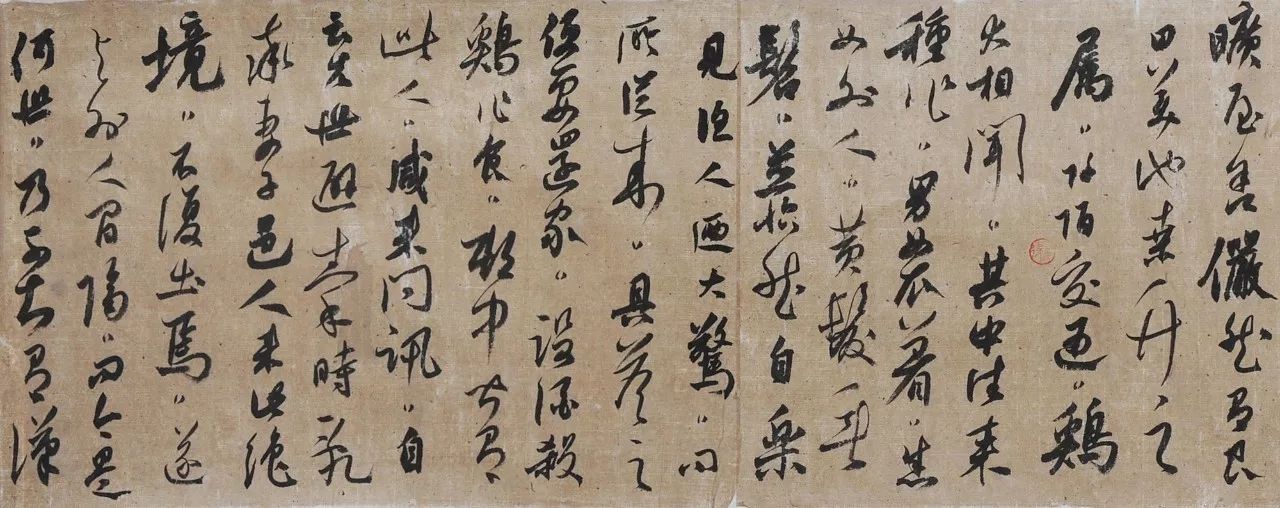 曠屋舍儼然有良
田美池桑竹之
屬阡陌交通鷄
犬相聞其中往来
種作男女衣著悉
如外人黄髮垂
髫並怡然自樂
見漁人迺大驚問
所從来具答之
便要還家設酒殺
鷄作食邨中聞有
此人咸来問訊自
云先世避秦時亂
率妻子邑人来此絶
境不復出焉遂
與外人間隔問今是
何世乃不知有漢